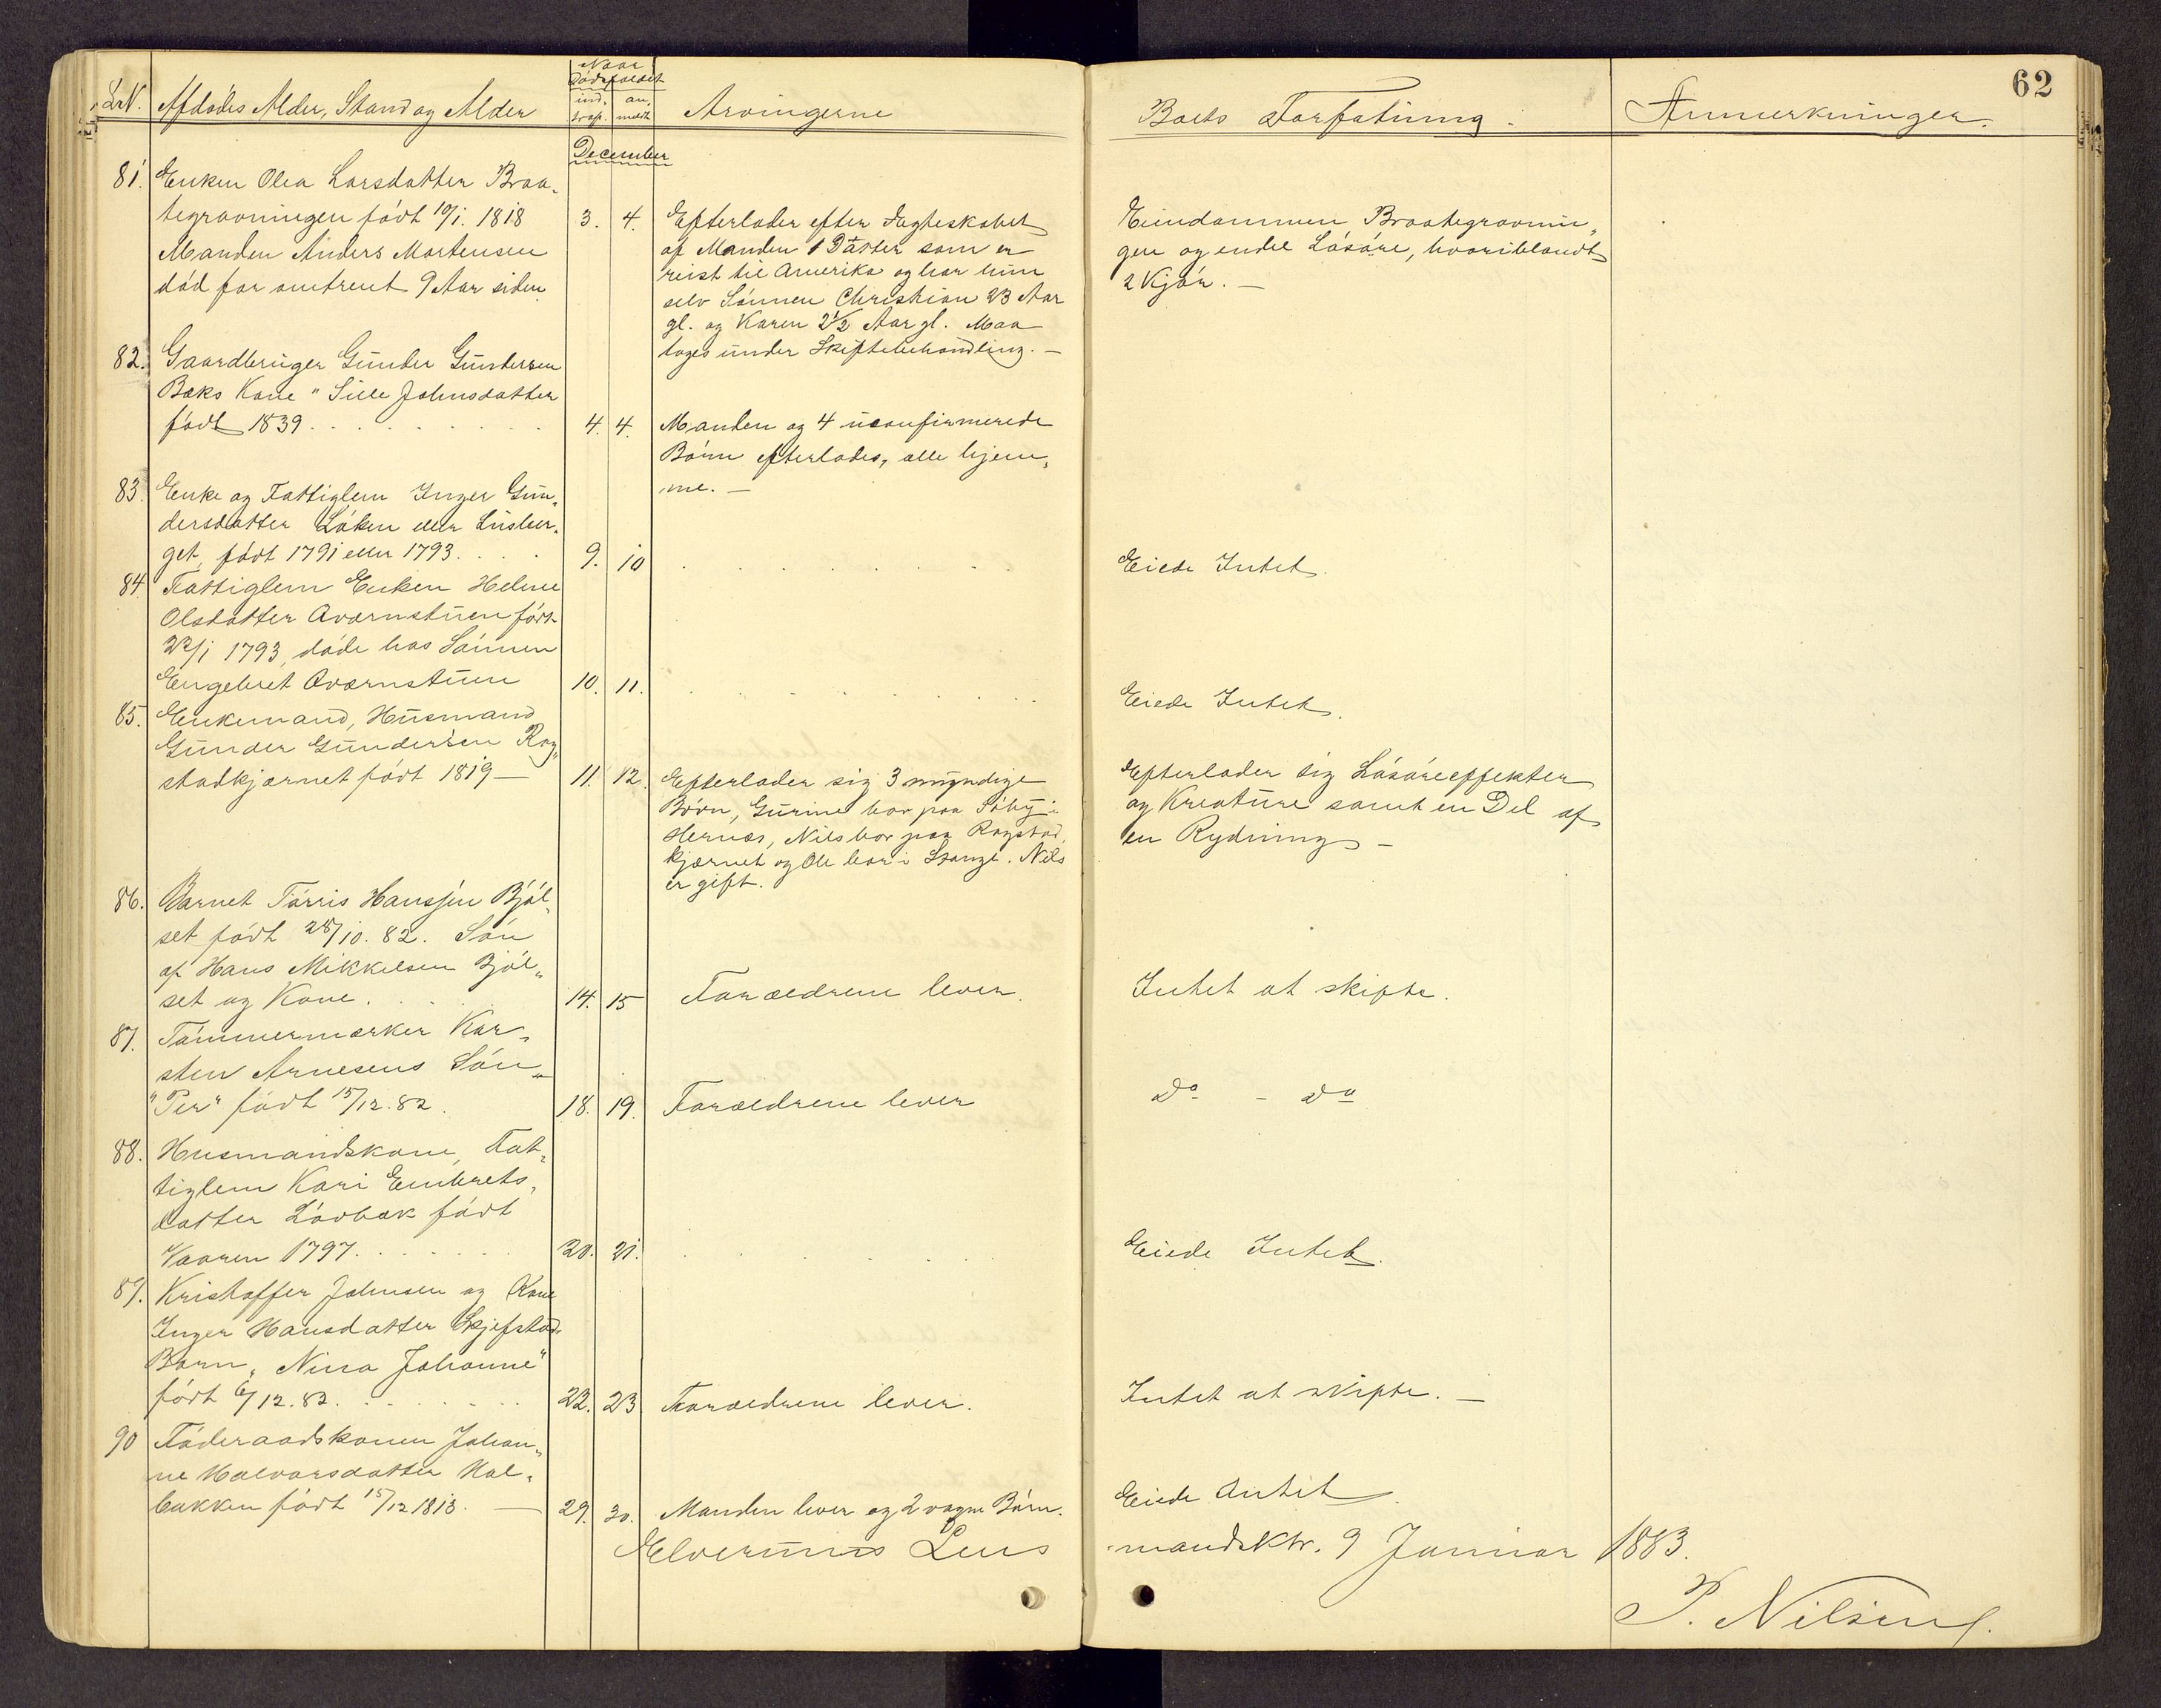 62
LN. Afdødes Alder, Stand og Alder
Naar
Dødsfaldet
ind- an-
traf. meldt
Arvingerne
Boets Forfatning.
Anmerkninger.
December
81. Enken Olea Larsdatter Braa-
tegravningen født 10/1. 1818 3. 4.
Manden Anders Mortensen
død for omtrent 9 Aar siden
Efterlader efter Ægteskabet
af Manden 1 Datter som er
reist til Amerika og har hun
selv Sønnen Christian 23 Aar
gl. og Karen 2 1/2 Aar gl. Maa
tages under Skiftebehandling. —
Eiendommen Braategravnin-
gen og endel Løsøre, hvoriblandt
2 Kjør. —
82. Gaardbruger Gunder Gundersen
Bæks Kone " Sille Johnsdatter
født 1839 . . . . 4. 4.
Manden og 4 uconfirmerede
Børn efterlades, alle hjem-
me. —
83. Enke og Fattiglem Inger Gun-
dersdatter Løken eller
get, født 1791 eller 1793. . . . 9. 10
Eiede Intet.
84. Fattiglem Enken Helene
Olsdatter Qværnstuen født
1793, døde hos Sønnen
Engebret Qværnstuen 10. 11.
Eiede Intet.
85. Enkemand, Husmand
Gunder Gundersen Rog-
stadkjærnet født 1819 — 11. 12.
Efterlader sig 3 myndige
Børn, Gurine bor paa Søby i
Hernæs, Nils bor paa Rogstad
kjærnet og Ole bor i Stange. Nils
er gift.
Efterlader sig Løsøreeffekter
og Kreature samt en Del af
en Rydning —
86. Barnet Tørris Hanssen Bjøl-
set født 28/10. 82. Søn
af Hans Mikkelsen Bjøl-
set og Kone. . . . 14. 15
Forældrene lever.
Intet at skifte.
87. Tømmermærker Kar-
sten Arnesens Søn
"Per" født 15/12. 82. 18. 19.
Forældrene lever
Do - do
88. Husmandskone, Fat-
tiglem Kari Embrets-
datter Løvbæk født
Vaaren 1797. . . . 20. 21.
Eiede Intet.
89. Kristoffer Johnsen og Kone
Inger Hansdatter Skjefstad
Barn „Nina Johanne"
født 6/12. 82. . . . 22. 23
Forældrene lever.
Intet at skifte. —
90 Føderaadskonen Johan-
ne Halvorsdatter Hol-
bækken født 15/12 1813. — 29. 30.
Manden lever og 2 vogne Børn.
Eiede Intet
Elverums Lens
mandsktr. 9 Januar 1883.
P. Nilsen.